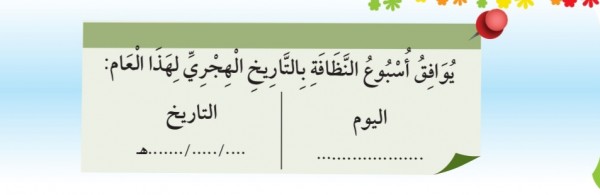 يُوَافِقُ أُسْبُوعُ النَّظَافَةِ بِالتَّارِيخِ الْهِجْرِيِّ لِهَذَا الْعَام:
اليوم التاريخ
..................... ..../...../.......هـ